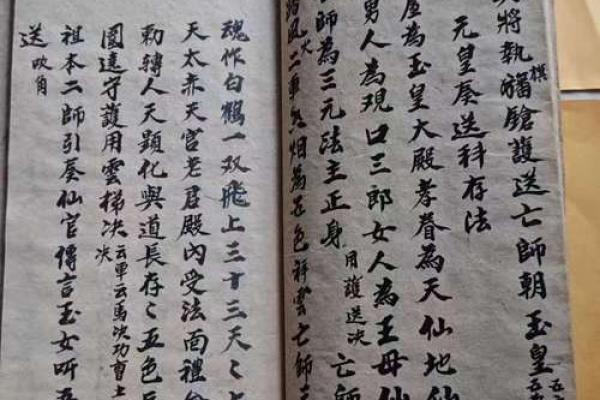 將執旛鎗護送亡師朝玉皇
元皇奏送科存法
屋為玉皇大殿孝眷為天仙地仙
男人為現口三郎女人為王母仙
師為三元法主正身 用護送決 亡師
風火二車 烟為五色祥雲亡師
魂作白鶴一双飛上三十三天〻上
天太赤天宮老君殿內受法面裡
勅轉人天顯化與道長存〻五色
圍遶守護用雲梯决 云車云馬决功曹土
祖本二師引奏仙官傳言玉女听吾
送 吹角